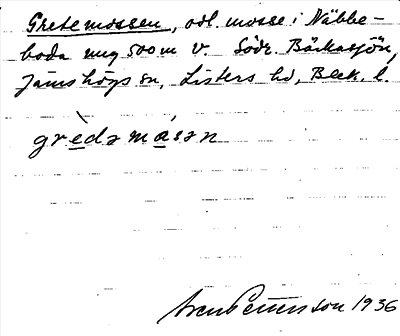 Gretemossen, odl. mosse i Näbbe-
boda umg 500 m V. Södr. Bäckasjön,
Jämshögs sn, Listers hd, Blek. l.
grèdəmåsən
Sven Petersson 1936